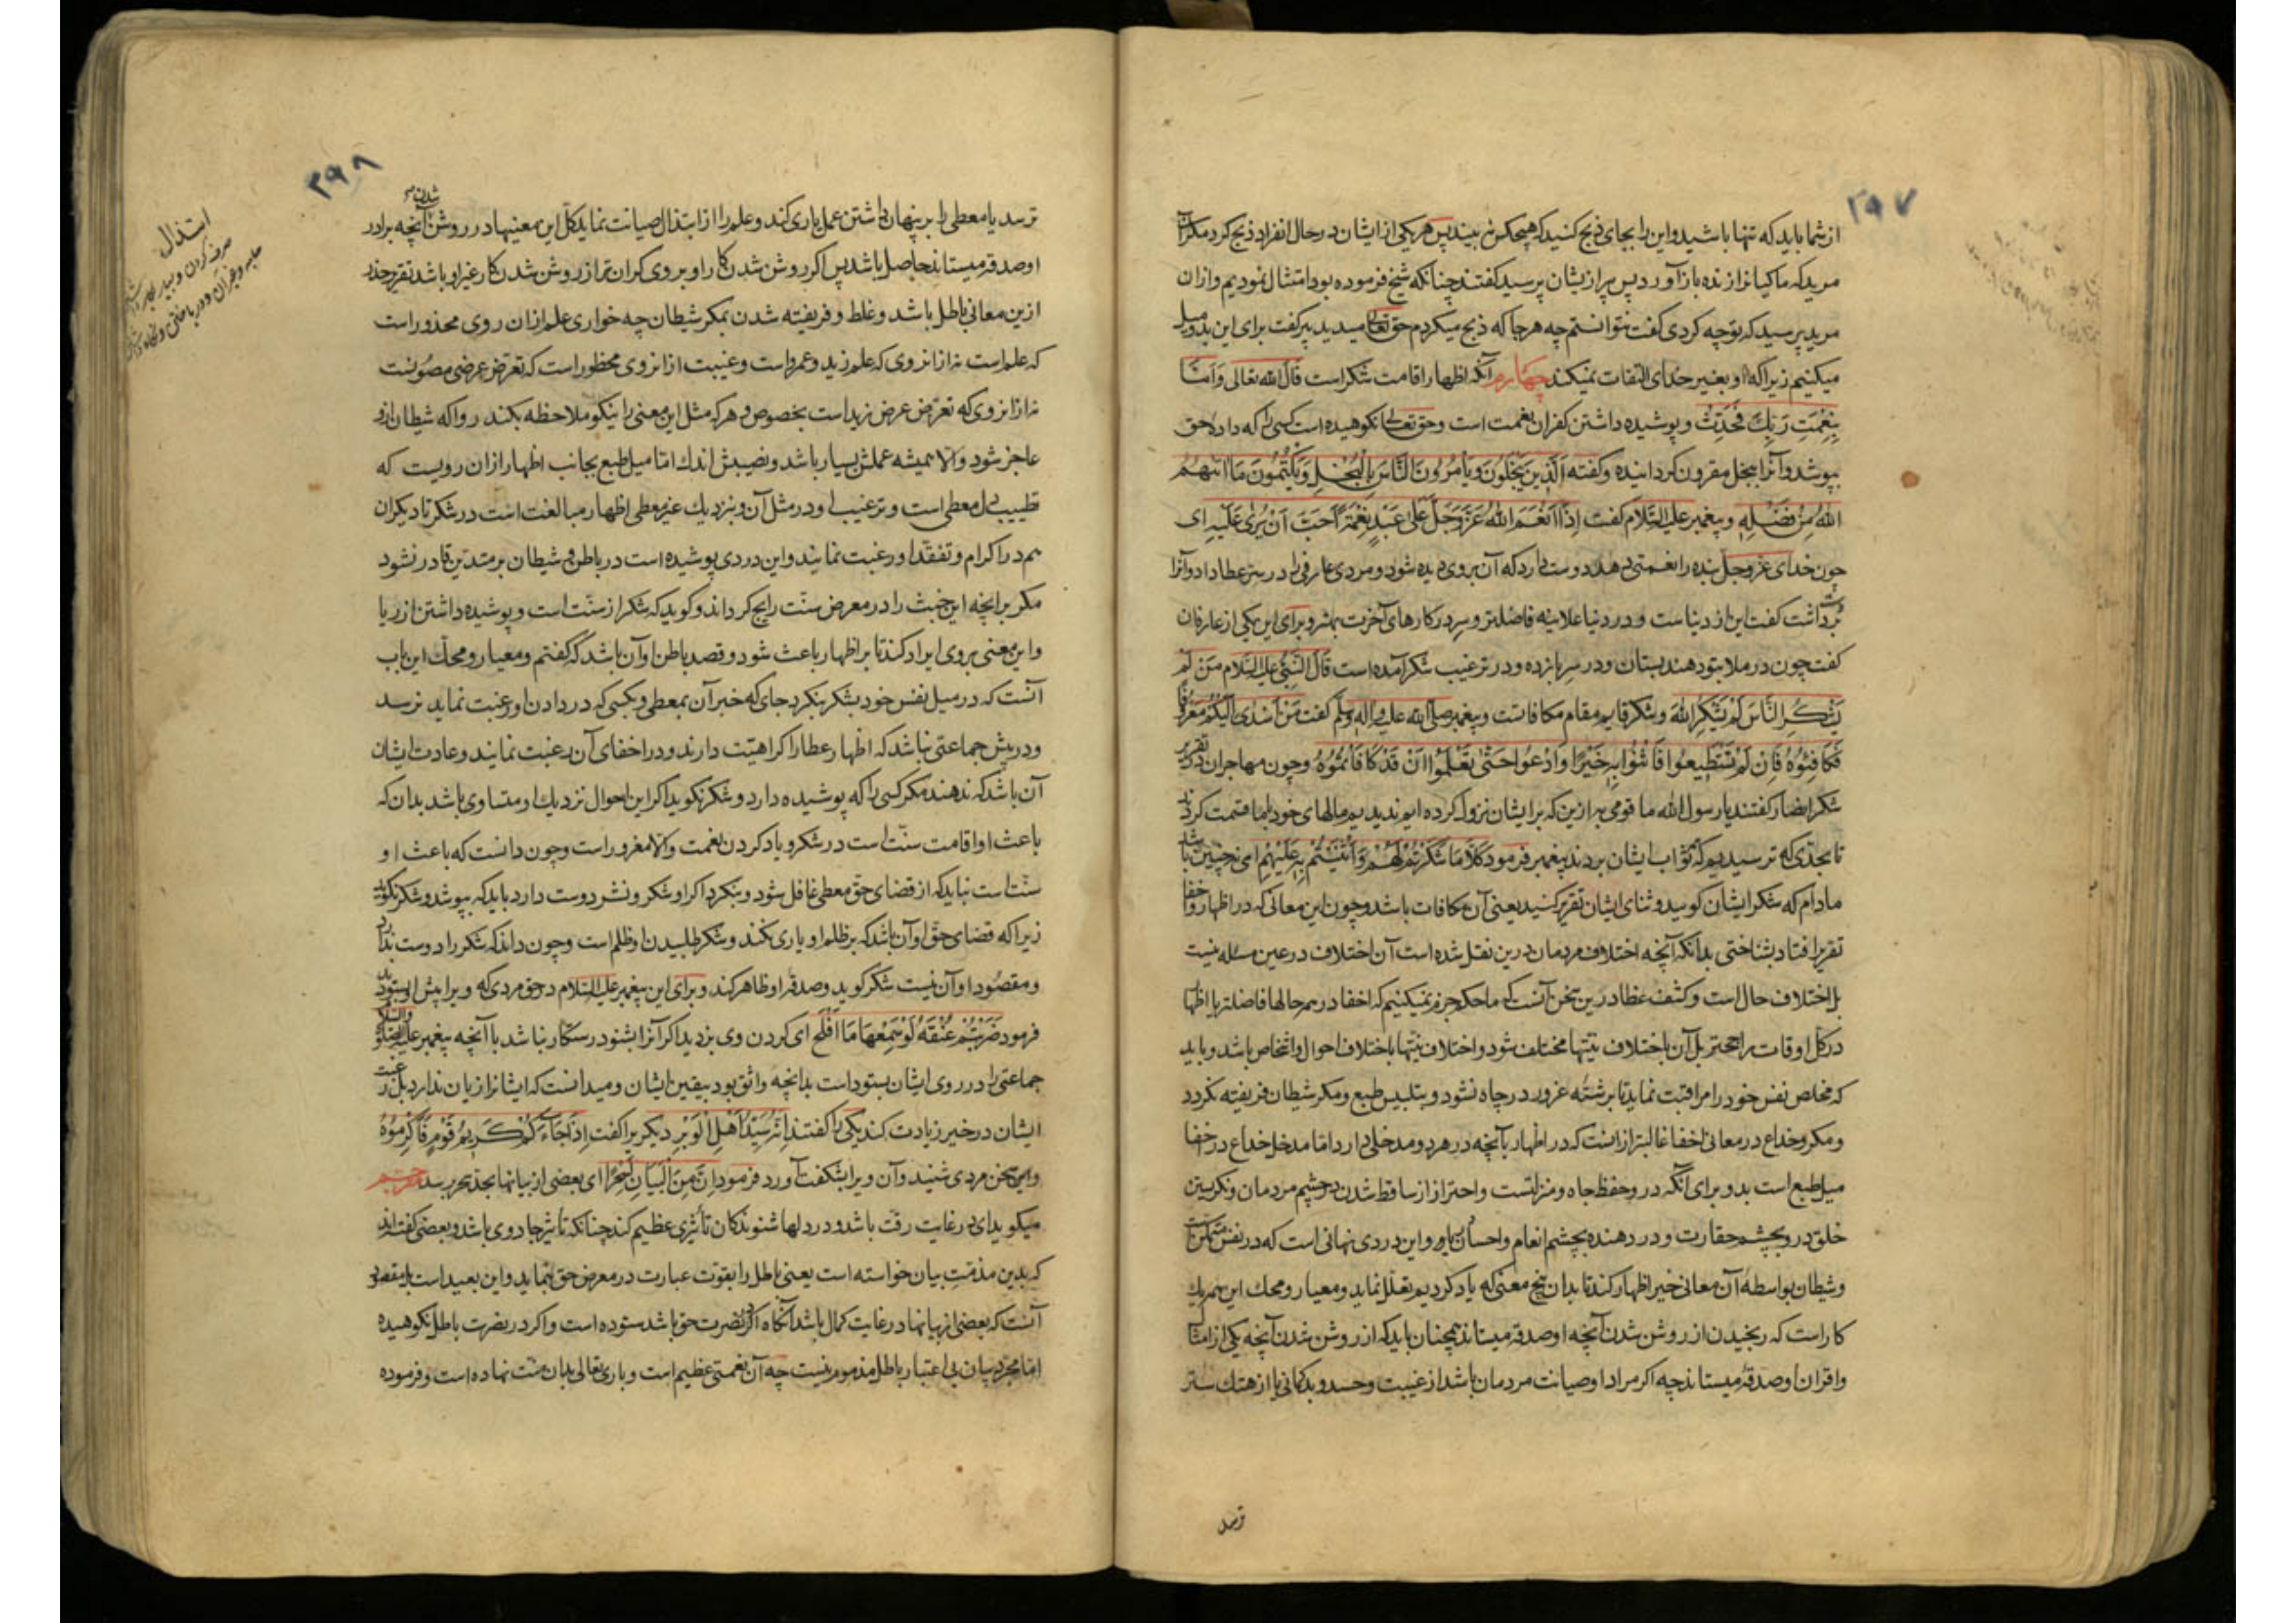 ۳۹۷
از شما باید که تنها باشید و این را بجای ذبح کنید که هیچکس نه بیند پس هر یکی از ایشان در حال انفراد ذبح کرد مکر آن
مرید که ماکیانرا زنده باز آورد پس پیر از یشان پرسید کفتند چنانکه شیخ فرموده بود امتثال نمودیم و ازان
مرید پرسید که تو چه کردی کفت نتوانستم چه هر جا که ذبح میکردم حق تعالی میدید پیر کفت برای این بدو میل
میکنیم زیرا که او بغیر خدای التفات نمیکند چهارم آنکه اظهار اقامت شکر است قال الله تعالی وَاَمّٰا
بِنِعْمَتِ رَبِّكَ فَحَدِّثْ و پوشیده داشتن کفران نعمت است و حق تعالی نکوهیده است کسی را که داده حق
بپوشد و آنرا ببخل مقرون کردانیده و کفته اَلَّذِینَ یَبْخَلُونَ وَیَأمُرُونَ النَّاسَ بِالْبُخْلِ وَیَکْتُمُونَ مَا اٰتٰیهُمُ
اللهُ مِنْ فَضْلِهِ و پیغمبر علیه السلام کفت اِذَا اَنْعَمَ اللهُ عَزَّ وَجَلَّ عَلٰی عَبْدٍ نِعْمَةً اَحَبَّ اَنْ یُرٰی عَلَیْهِ ای
چون خدای عز وجل بنده را نعمتی دهد دوست دارد که آن بروی دیده شود و مردی عارفی را در سر عطا داد و آنرا
برداشت کفت این از دنیاست و در دنیا علانیه فاضلتر و سر در کارهای آخرت بهتر و برای این یکی از عارفان
کفت چون در ملا بتو دهند بستان و در سر باز ده و در ترغیب شکر آمده است قال النبی علیه السلام مَنْ لَمْ
یَشْکُرِ النَّاسَ لَمْ یَشْکُرِ اللهَ و شکر قایم مقام مکافاتست و پیغمبر صلی الله علیه واله وسلم کفت مَنْ اَسْدٰی اِلَیْکُمْ مَعْرُوفًا
فَکَافِئُوهُ فَاِنْ لَمْ تَسْتَطِیعُوا فَاَثْنُوا بِهِ خَیْرًا وَادْعُوا حَتّٰی تَعْلَمُوا اَنْ قَدْ کَافَأْتُمُوهُ و چون مهاجران در تقریر
شکر انصار کفتند یا رسول الله ما قومی بهر ازین که بر ایشان نزول کرده ایم ندیدیم مالهای خود با ما قسمت کردند
تا بحدی که ترسیدیم که ثواب ایشان بردند پیغمبر فرمود کَلَّا مَا شَکَرْتُمْ لَهُمْ وَاَثْنَیْتُمْ بِهِ عَلَیْهِمْ ای نه چنین باشد
مادام که شکر ایشان کویید و ثنای ایشان تقریر کنید یعنی آن مکافات باشد و چون این معانی که در اظهار و اخفا
تقریر افتاد بشناختی بدانکه آنچه اختلاف مردمان درین نقل شده است آن اختلاف در عین مسئله نیست
بل اختلاف حال است و کشف غطا درین سخن آنست که ما حکم جزم نمیکنیم که اخفا در همه حالها فاضلتر یا اظهار
در کل اوقات راجحتر بل آن باختلاف نیتها مختلف شود و اختلاف نیتها باختلاف احوال و اشخاص باشد و باید
که مخلص نفس خود را مراقبت نماید تا برشته غرور در چاه نشود و بتلبیس طبع و مکر شیطان فریفته نکردد
و مکر و خداع در معانی اخفا غالبتر ازانست که در اظهار با آنچه در هر دو مدخلی دارد اما مدخل خداع در اخفا
میل طبع است بدو برای آنکه در و حفظ جاه و منزلتست و احتراز از ساقط شدن در چشم مردمان و نکریستن
خلق در و بچشم حقارت و در دهنده بچشم انعام و احسان باو و این دردی نهانی است که در نفس متمکن است
و شیطان بواسطه آن معانی خیر اظهار کند تا بدان پنج معنی که یاد کردیم تعلل نماید و معیار و محک این همه یک
کار است که رنجیدن از روشن شدن آنچه او صدقه میستاند همچنان باید که از روشن شدن آنچه یکی از امثال
و اقران او صدقه میستاند چه اکر مراد او صیانت مردمان باشد از غیبت و حسد و بدکمانی یا از هتک ستر
ترسد
۳۹۸
ترسد یا معطی را بر پنهان داشتن عمل یاری کند و علم را از ابتذال صیانت نماید کل این معنیها در روشن شدن آنچه برادر
او صدقه میستاند حاصل باشد پس اکر روشن شدن کار او بر وی کران تر از روشن شدن کار غیر او باشد تقریر حذر
ازین معانی باطل باشد و غلط و فریفته شدن بمکر شیطان چه خواری علم ازان روی محذور است
که علم است نه از انروی که علم زید و عمرو است و غیبت از انروی محظور است که تعرض عرضی مصونست
نه از انروی که تعرض عرض زید است بخصوص و هر که مثل این معنی را نیکو ملاحظه بکند روا که شیطان ازو
عاجز شود والا همیشه عملش بسیار باشد و نصیبش اندک اما میل طبع بجانب اظهار ازان رویست که
تطییب دل معطی است و ترغیب او در مثل آن و بنزدیک غیر معطی اظهار مبالغت است در شکر تا دیکران
هم در اکرام و تفقد او رغبت نمایند و این دردی پوشیده است در باطن و شیطان بر متدین قادر نشود
مکر برانچه این خبث را در معرض سنت رایج کرداند و کوید که شکر از سنت است و پوشیده داشتن از ریا
و این معنی بروی ایراد کند تا بر اظهار باعث شود و قصد باطن او آن باشد که کفتم و معیار و محک این باب
آنست که در میل نفس خود بشکر بنکرد جای که خبر آن بمعطی و بکسی که در دادن او رغبت نماید نرسد
و در پیش جماعتی باشد که اظهار عطا را کراهیت دارند و در اخفای آن رغبت نمایند و عادت ایشان
آن باشد که ندهند مکر کسی را که پوشیده دارد و شکر نکوید اکر این احوال نزدیک او متساوی باشد بدان که
باعث او اقامت سنت است در شکر و یاد کردن نعمت والا مغرور است و چون دانست که باعث او
سنت است نباید که از قضای حق معطی غافل شود و بنکرد اکر او شکر و نشر دوست دارد باید که بپوشد و شکر نکوید
زیرا که قضای حق او آن باشد که بر ظلم او یاری نکند و شکر طلبیدن او ظلم است و چون داند که شکر را دوست ندارد
و مقصود او آن نیست شکر کوید و صدقه او ظاهر کند و برای این پیغمبر علیه السلام در حق مردی که ویرا پیش او بستودند
فرمود ضَرَبْتُمْ عُنُقَهُ لَوْ سَمِعَهَا مَا اَفْلَحَ ای کردن وی بزدید اکر آنرا بشنود رستکار نباشد با آنچه پیغمبر علیه الصلوة والسلام
جماعتی را در روی ایشان بستود است بدانچه واثق بود بیقین ایشان و میدانست که ایشانرا زیان ندارد بل رغبت
ایشان در خیر زیادت کند یکی را کفتند اِنَّهُ سَیِّدُ اَهْلِ الْوَبَرِ دیکریرا کفت اِذَا جَاءَکُمْ کَرِیمُ قَوْمٍ فَاَکْرِمُوهُ
و این سخن مردی شنید و آن ویرا بشکفت آورد فرمود اِنَّ مِنَ الْبَیَانِ لَسِحْرًا ای بعضی از بیانها بحد سحر رسد مترجم
میکوید ای در غایت رقت باشد و در دلها شنوندکان تأثیری عظیم کند چنانکه تأثیر جادوی باشد و بعضی کفته اند
که بدین مذمت بیان خواسته است یعنی باطل را بقوت عبارت در معرض حق بنماید و این بعید است بل مقصود
آنست که بعضی از بیانها در غایت کمال باشد آنکاه اکر در نصرت حق باشد ستوده است و اکر در نصرت باطل نکوهیده
اما مجرد بیان بی اعتبار باطل مذموم نیست چه آن نعمتی عظیم است و باری تعالی بدان منت نهاده است و فرموده
ابتذال
صرف کردن و بسیار بکار داشتن
جامه و غیر آن و در باختن و نکاه نداشتن